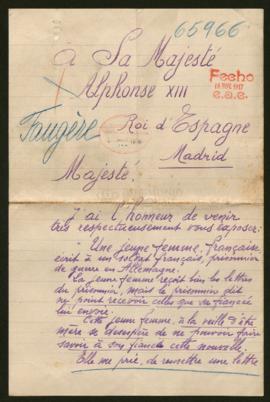 65966
à Sa Majesté
Alphonse XIII
Fecho
Roi d'Espagne
Madrid
Majesté.
J'ai l'honneur de venir
très respectueusement vous exposer:
Une jeune femme, française
écrit à un soldat français, prisonnier
de guerre en Allemagne.
La jeune femme reçoit bien les lettres
du prisonnier, mais le prisonnier dit
ne point recevoir celles que sa fiancée
lui envoie.
Cette jeune femme, à la veille d'être
mère se désespère de ne pouvoir faire
savoir à son fiancé cette nouvelle.
Elle me prie, de remettre une lettre